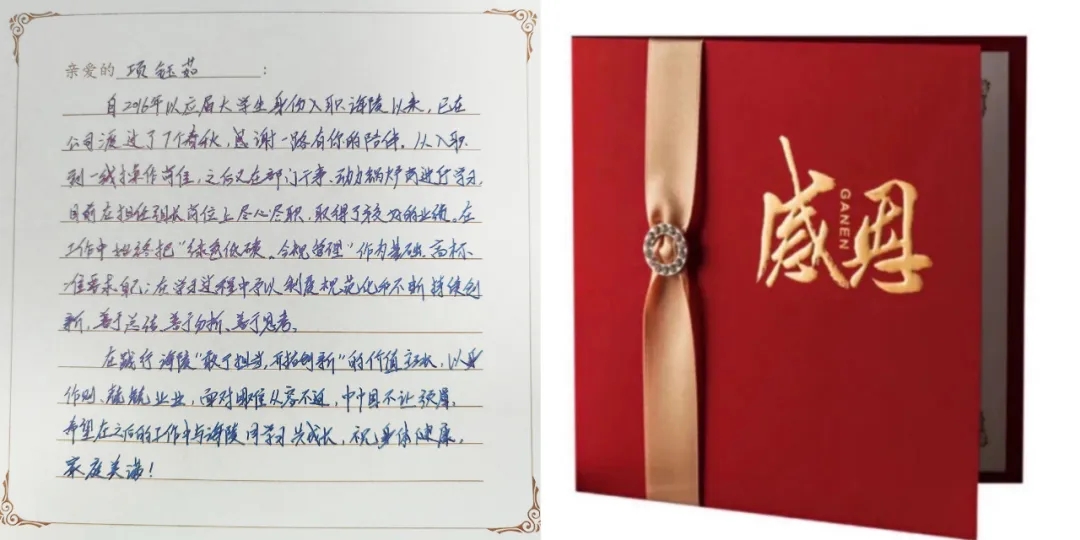 亲爱的 项钰茹 :
自2016年以应届大学生身份入职海陵以来,已在
公司渡过了7个春秋,感谢一路有你的陪伴。从入职
到一线操作岗位,之后又在部门干事、动力锅炉岗进行学习,
目前在担任班长岗位上尽心尽职,取得了较好的业绩。在
工作中始终把“绿色低碳、合规管理”作为基础,高标
准要求自己;在学习过程中予以制度规范化和不断持续创
新,善于总结、善于分析、善于思考。
在践行海陵“敢于担当,开拓创新”的价值主张,以身
作则、兢兢业业,面对困难从容不迫,巾帼不让须眉,
希望在之后的工作中与海陵同学习共成长,祝身体健康,
家庭美满!
感恩
GANEN